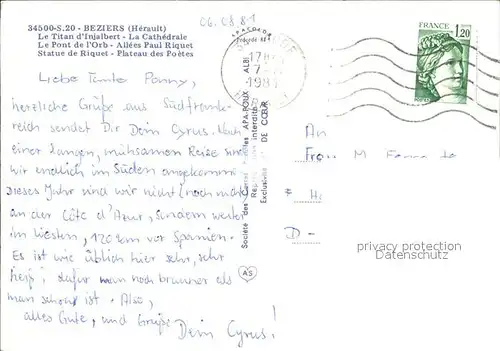 34500-S.20 - BEZIERS (Hérault)
Le Titan d'Injalbert - La Cathédrale
Le Pont de l'Orb - Allées Paul Riquet
Statue de Riquet - Plateau des Poètes
06.08.81
Liebe Tante Ponny,
herzliche Grüße aus Südfrank-
reich sendet Dir Dein Cyrus. Nach
einer langen, mühsamen Reise sind
wir endlich im Süden angekommen.
Dieses Jahr sind wir nicht (noch mal)
an der Côte d'Azur, sondern weiter
im Westen, 120 km vor Spanien.
Es ist wie üblich hier sehr, sehr
heiß; dafür man noch brauner als
man schon ist. Also,
alles Gute, und Grüße
Dein Cyrus!
17H
7-
1981
FRANCE
1,20
Société des Cartes APA-POUX ALBI
interdite
Exclusivité DE CŒUR
AS
An
Frau M
D-
privacy protection
Datenschutz